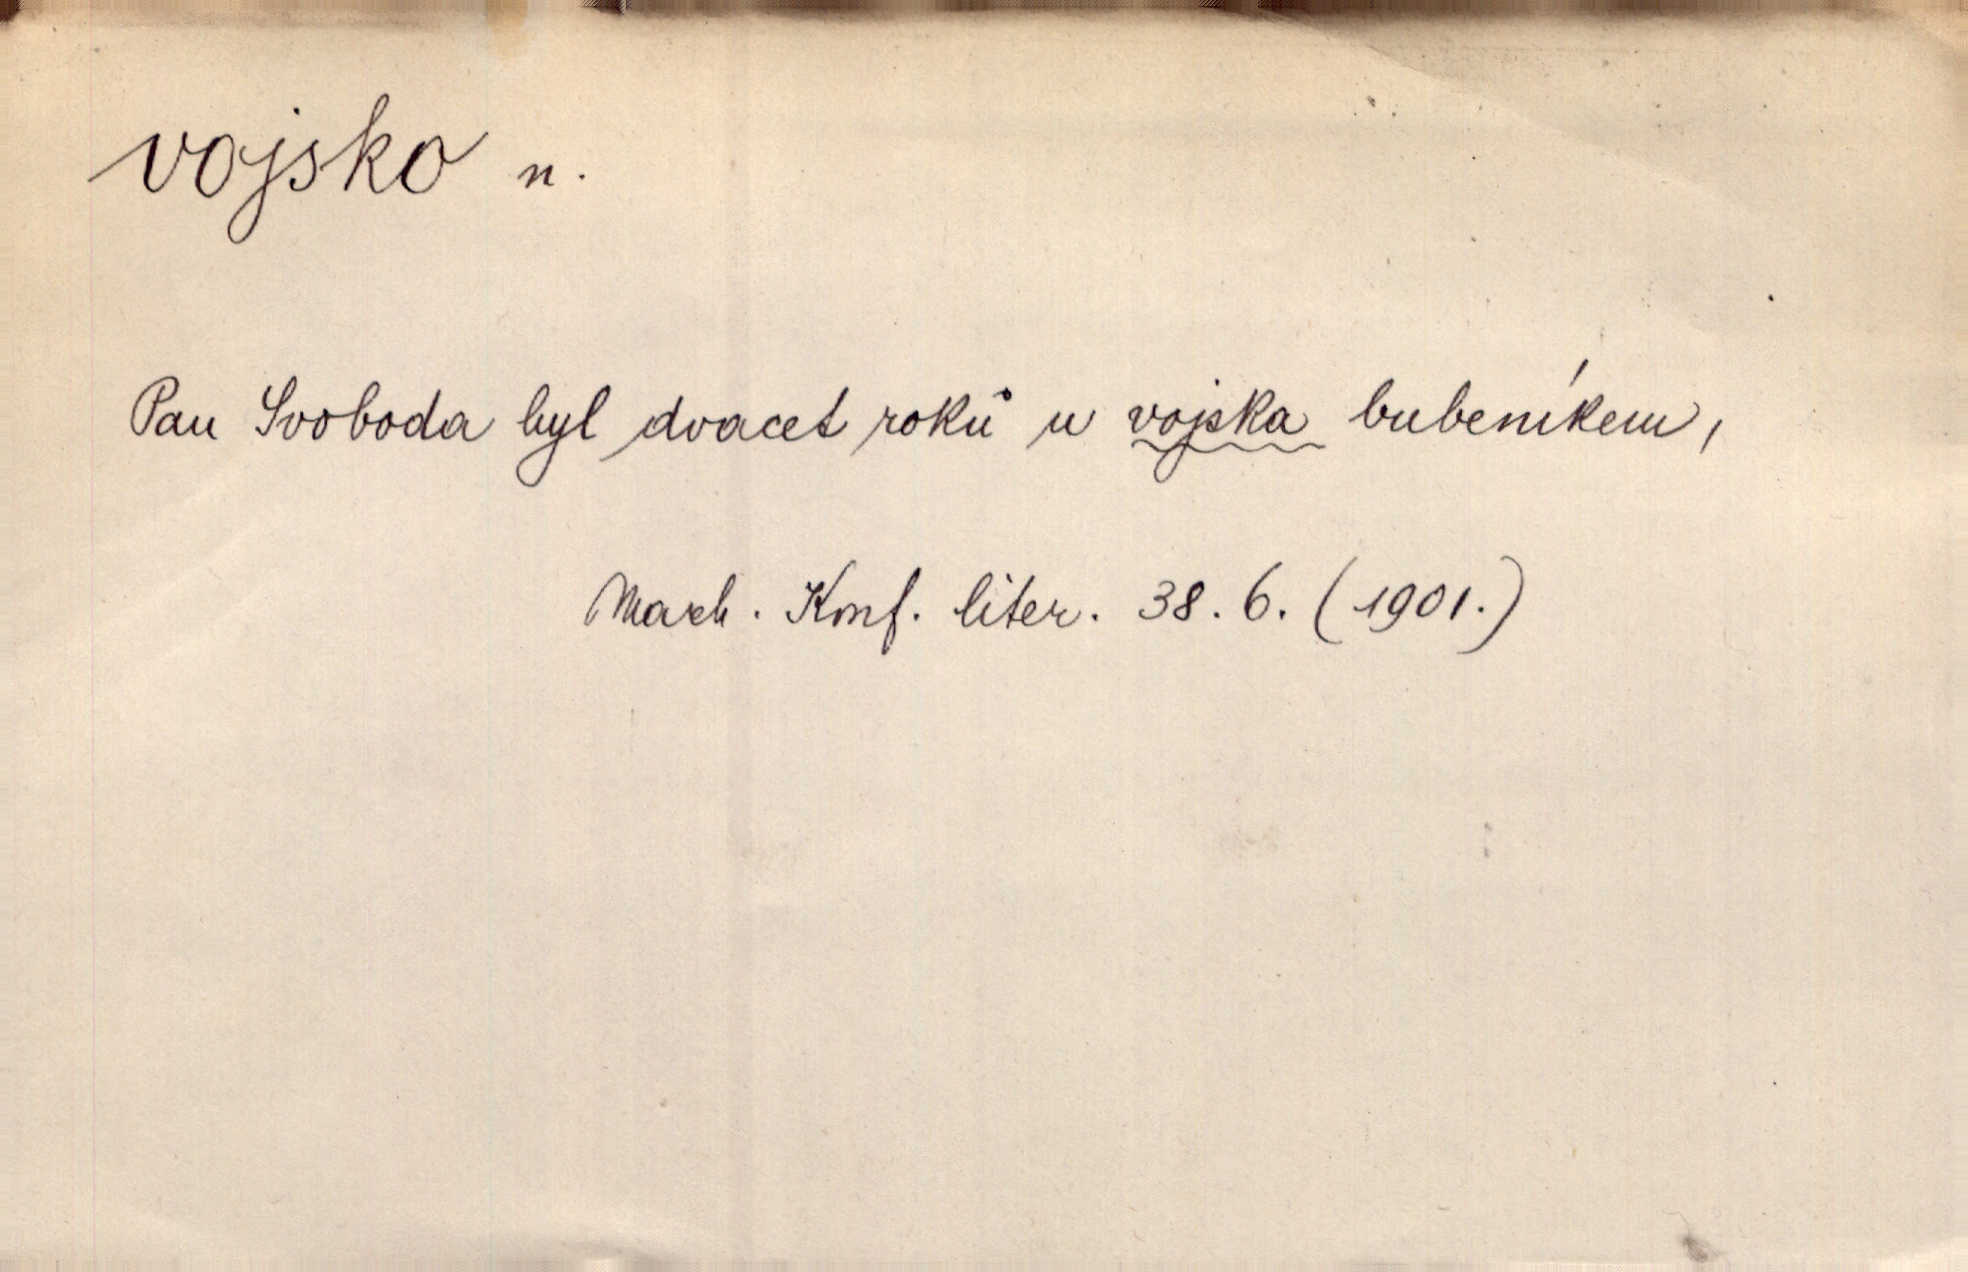 vojsko n.
Pan Svoboda byl dvacet roků u vojska bubeníkem,
Mach. Konf. liter. 38. 6. (1901.)